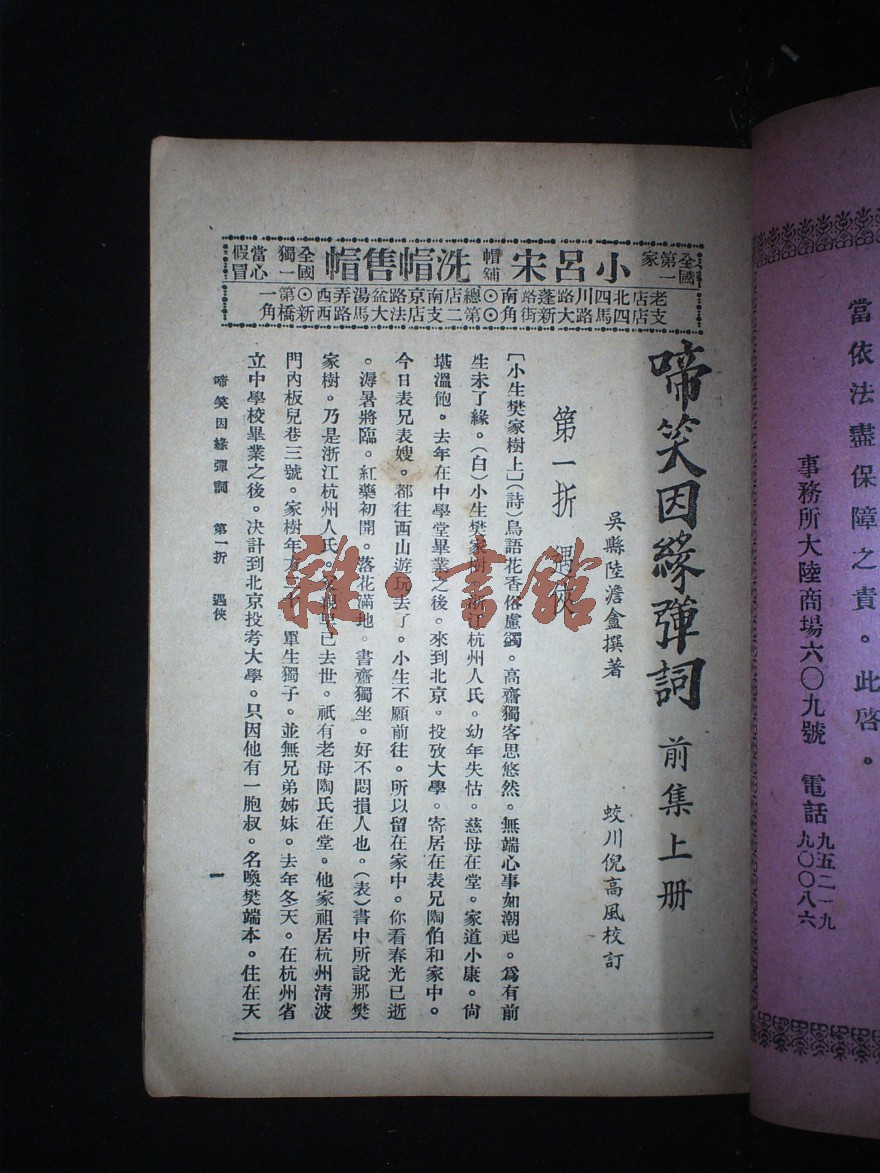 當依法盡保障之責。此啓。
事務所大陸商場六〇九號 電話九五二一九
九〇〇八六
全國第一家 小呂宋帽舖 洗帽售帽 全國獨一 當心假冒
老店北四川路蓬路南⊙總店南京路盆湯弄西⊙第一
支店四馬路大新街角⊙第二支店法大馬路西新橋角
啼笑因緣彈詞 前集上册
吳縣陸澹盦撰著 蛟川倪高風校訂
第一折 遇俠
[小生樊家樹上](詩)鳥語花香俗慮蠲。高齋獨客思悠然。無端心事如潮起。爲有前
生未了緣。(白)小生樊家樹。浙江杭州人氏。幼年失怙。慈母在堂。家道小康。尙
堪溫飽。去年在中學堂畢業之後。來到北京。投攷大學。寄居在表兄陶伯和家中。
今日表兄表嫂。都往西山游玩去了。小生不願前往。所以留在家中。你看春光已逝
。溽暑將臨。紅藥初開。落花滿地。書齋獨坐。好不悶損人也。(表)書中所說那樊
家樹。乃是浙江杭州人氏。父親早已去世。祇有老母陶氏在堂。他家祖居杭州清波
門內板兒巷三號。家樹年方二十。單生獨子。並無兄弟姊妹。去年冬天。在杭州省
立中學校畢業之後。決計到北京投考大學。只因他有一胞叔。名喚樊端本。住在天
啼笑因緣彈詞 第一折 遇俠 一
雜·書館